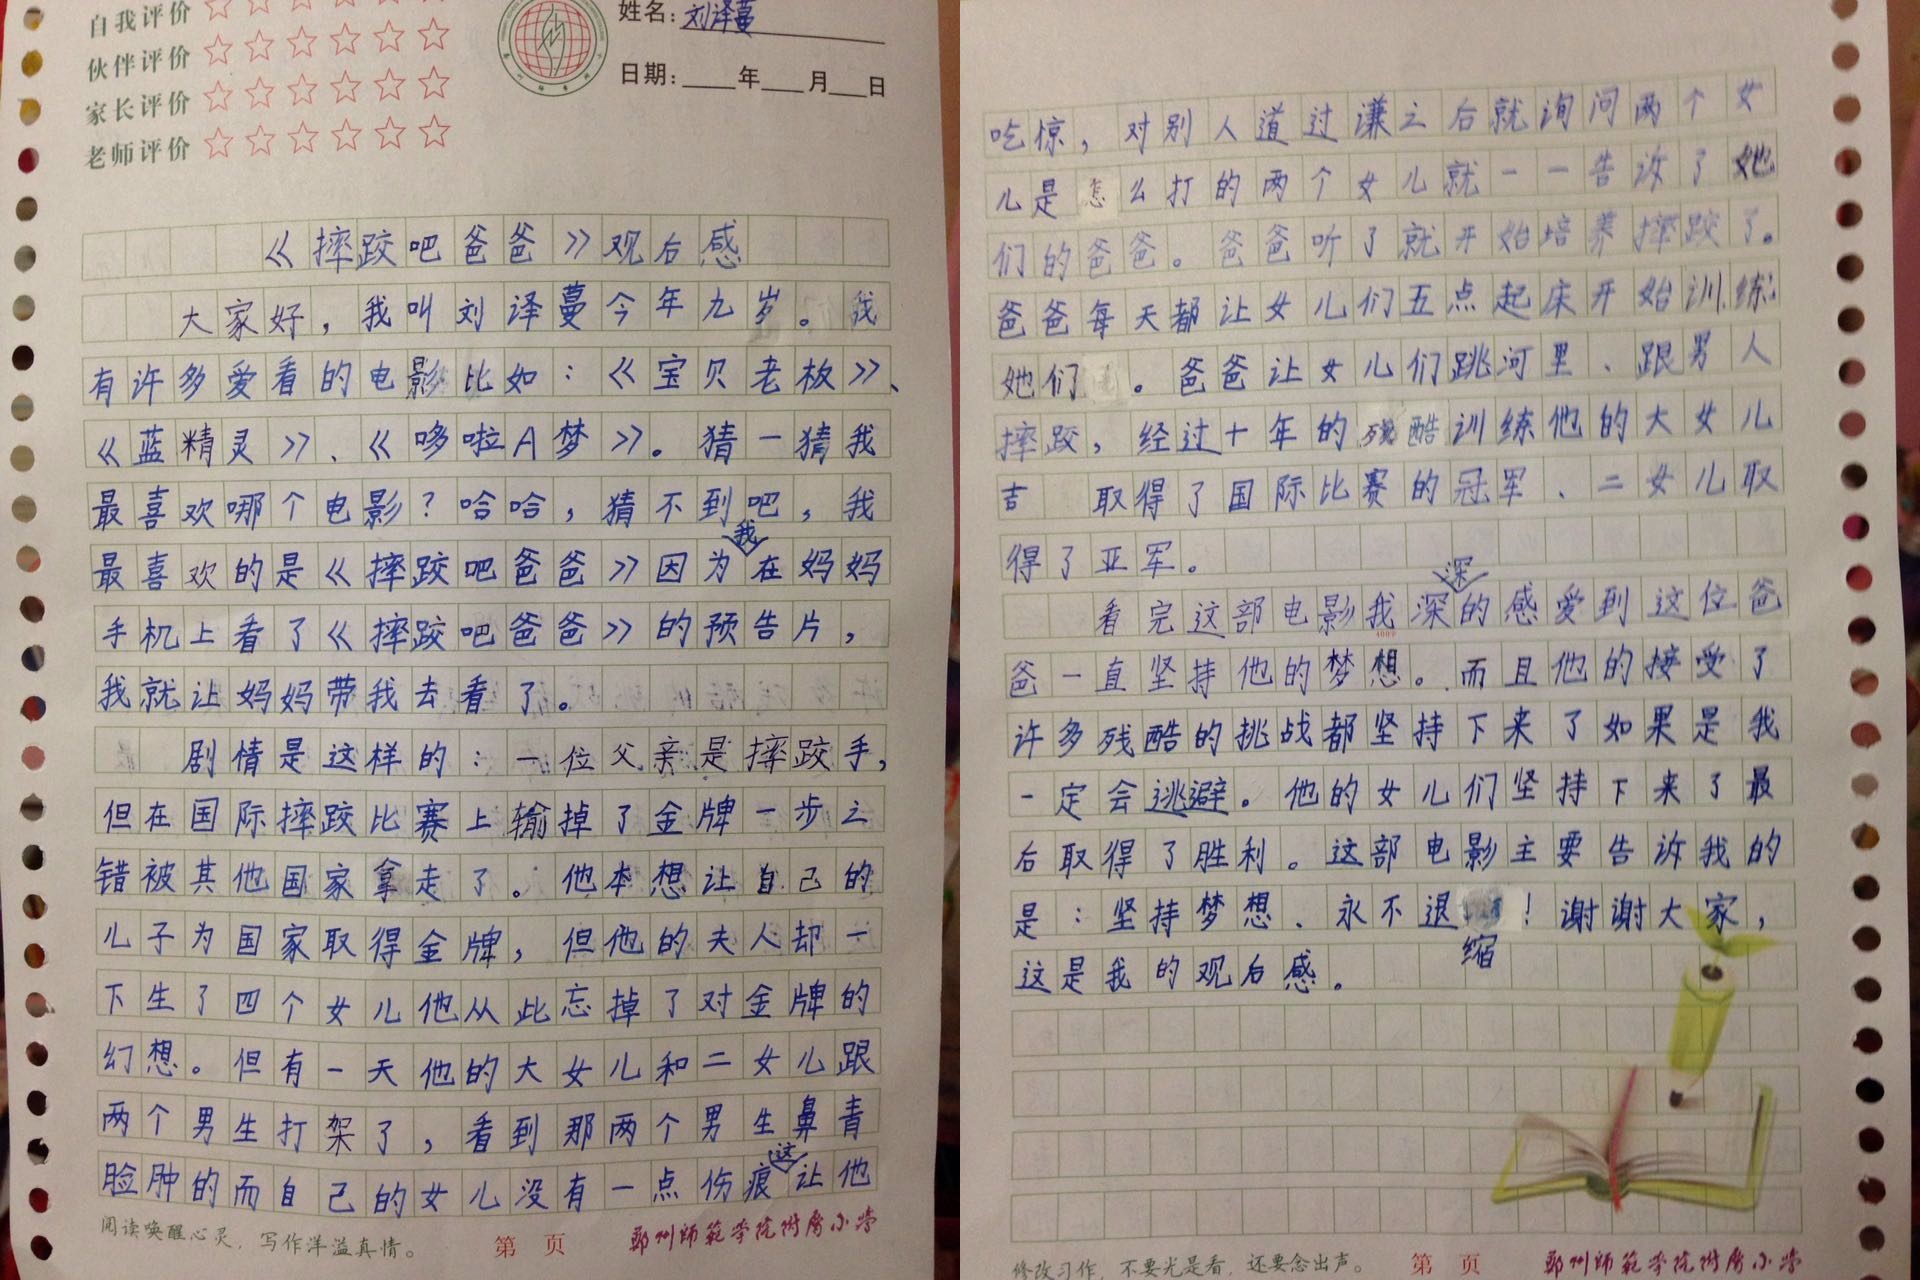 自我评价
伙伴评价
家长评价
老师评价
姓名：刘译蔓
日期：____年___月___日
《摔跤吧爸爸》观后感
大家好，我叫刘译蔓今年九岁。我
有许多爱看的电影比如：《宝贝老板》、
《蓝精灵》、《哆啦A梦》。猜一猜我
最喜欢哪个电影？哈哈，猜不到吧，我
最喜欢的是《摔跤吧爸爸》因为我在妈妈
手机上看了《摔跤吧爸爸》的预告片，
我就让妈妈带我去看了。
剧情是这样的：一位父亲是摔跤手，
但在国际摔跤比赛上输掉了金牌一步之
错被其他国家拿走了。他本想让自己的
儿子为国家取得金牌，但他的夫人却一
下生了四个女儿他从此忘掉了对金牌的
幻想。但有一天他的大女儿和二女儿跟
两个男生打架了，看到那两个男生鼻青
脸肿的而自己的女儿没有一点伤痕这让他
阅读唤醒心灵，写作洋溢真情。
第 页
郑州师范学院附属小学
吃惊，对别人道过谦之后就询问两个女
儿是怎么打的两个女儿就一一告诉了她
们的爸爸。爸爸听了就开始培养摔跤了。
爸爸每天都让女儿们五点起床开始训练
她们。爸爸让女儿们跳河里、跟男人
摔跤，经过十年的残酷训练他的大女儿
吉 取得了国际比赛的冠军、二女儿取
得了亚军。
看完这部电影我深深的感爱到这位爸
400字
爸一直坚持他的梦想。而且他的接受了
许多残酷的挑战都坚持下来了如果是我
一定会逃避。他的女儿们坚持下来了最
后取得了胜利。这部电影主要告诉我的
是：坚持梦想、永不退缩！谢谢大家，
这是我的观后感。
修改习作，不要光是看，还要念出声。
第 页
郑州师范学院附属小学